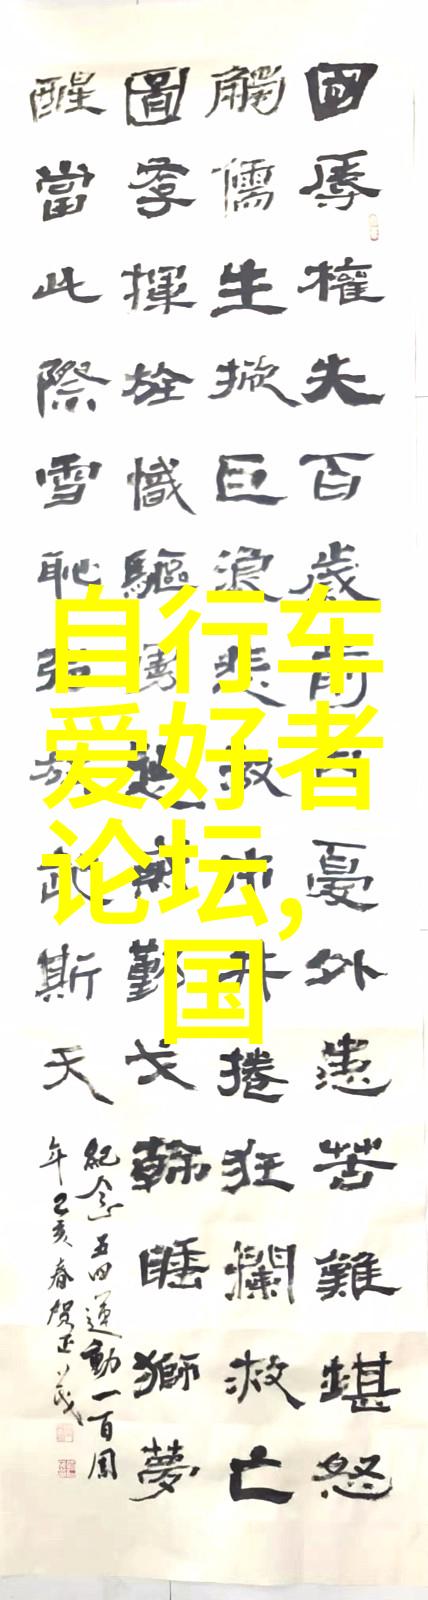 國辱權失百歲前憂外患苦難堪怒
觸儒生掀巨浪悲市井捲狂瀾救亡
圖存揮旌幟驅戈睡獅夢
醒當此際雪恥強斯天
紀念五四運動一百周
年己亥春賀正
自行车
爱好者
论坛,
国